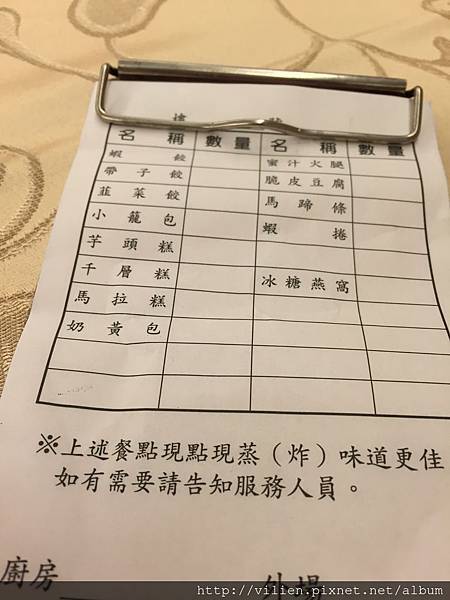 名稱 數量 名稱 數量
蝦餃 蜜汁火腿
帶子餃 脆皮豆腐
韮菜餃 馬蹄條
小籠包 蝦捲
芋頭糕
千層糕 冰糖燕窩
馬拉糕
奶黃包
※上述餐點現點現蒸（炸）味道更佳
如有需要請告知服務人員。
廚房 外場
http://vilien.pixnet.net/album